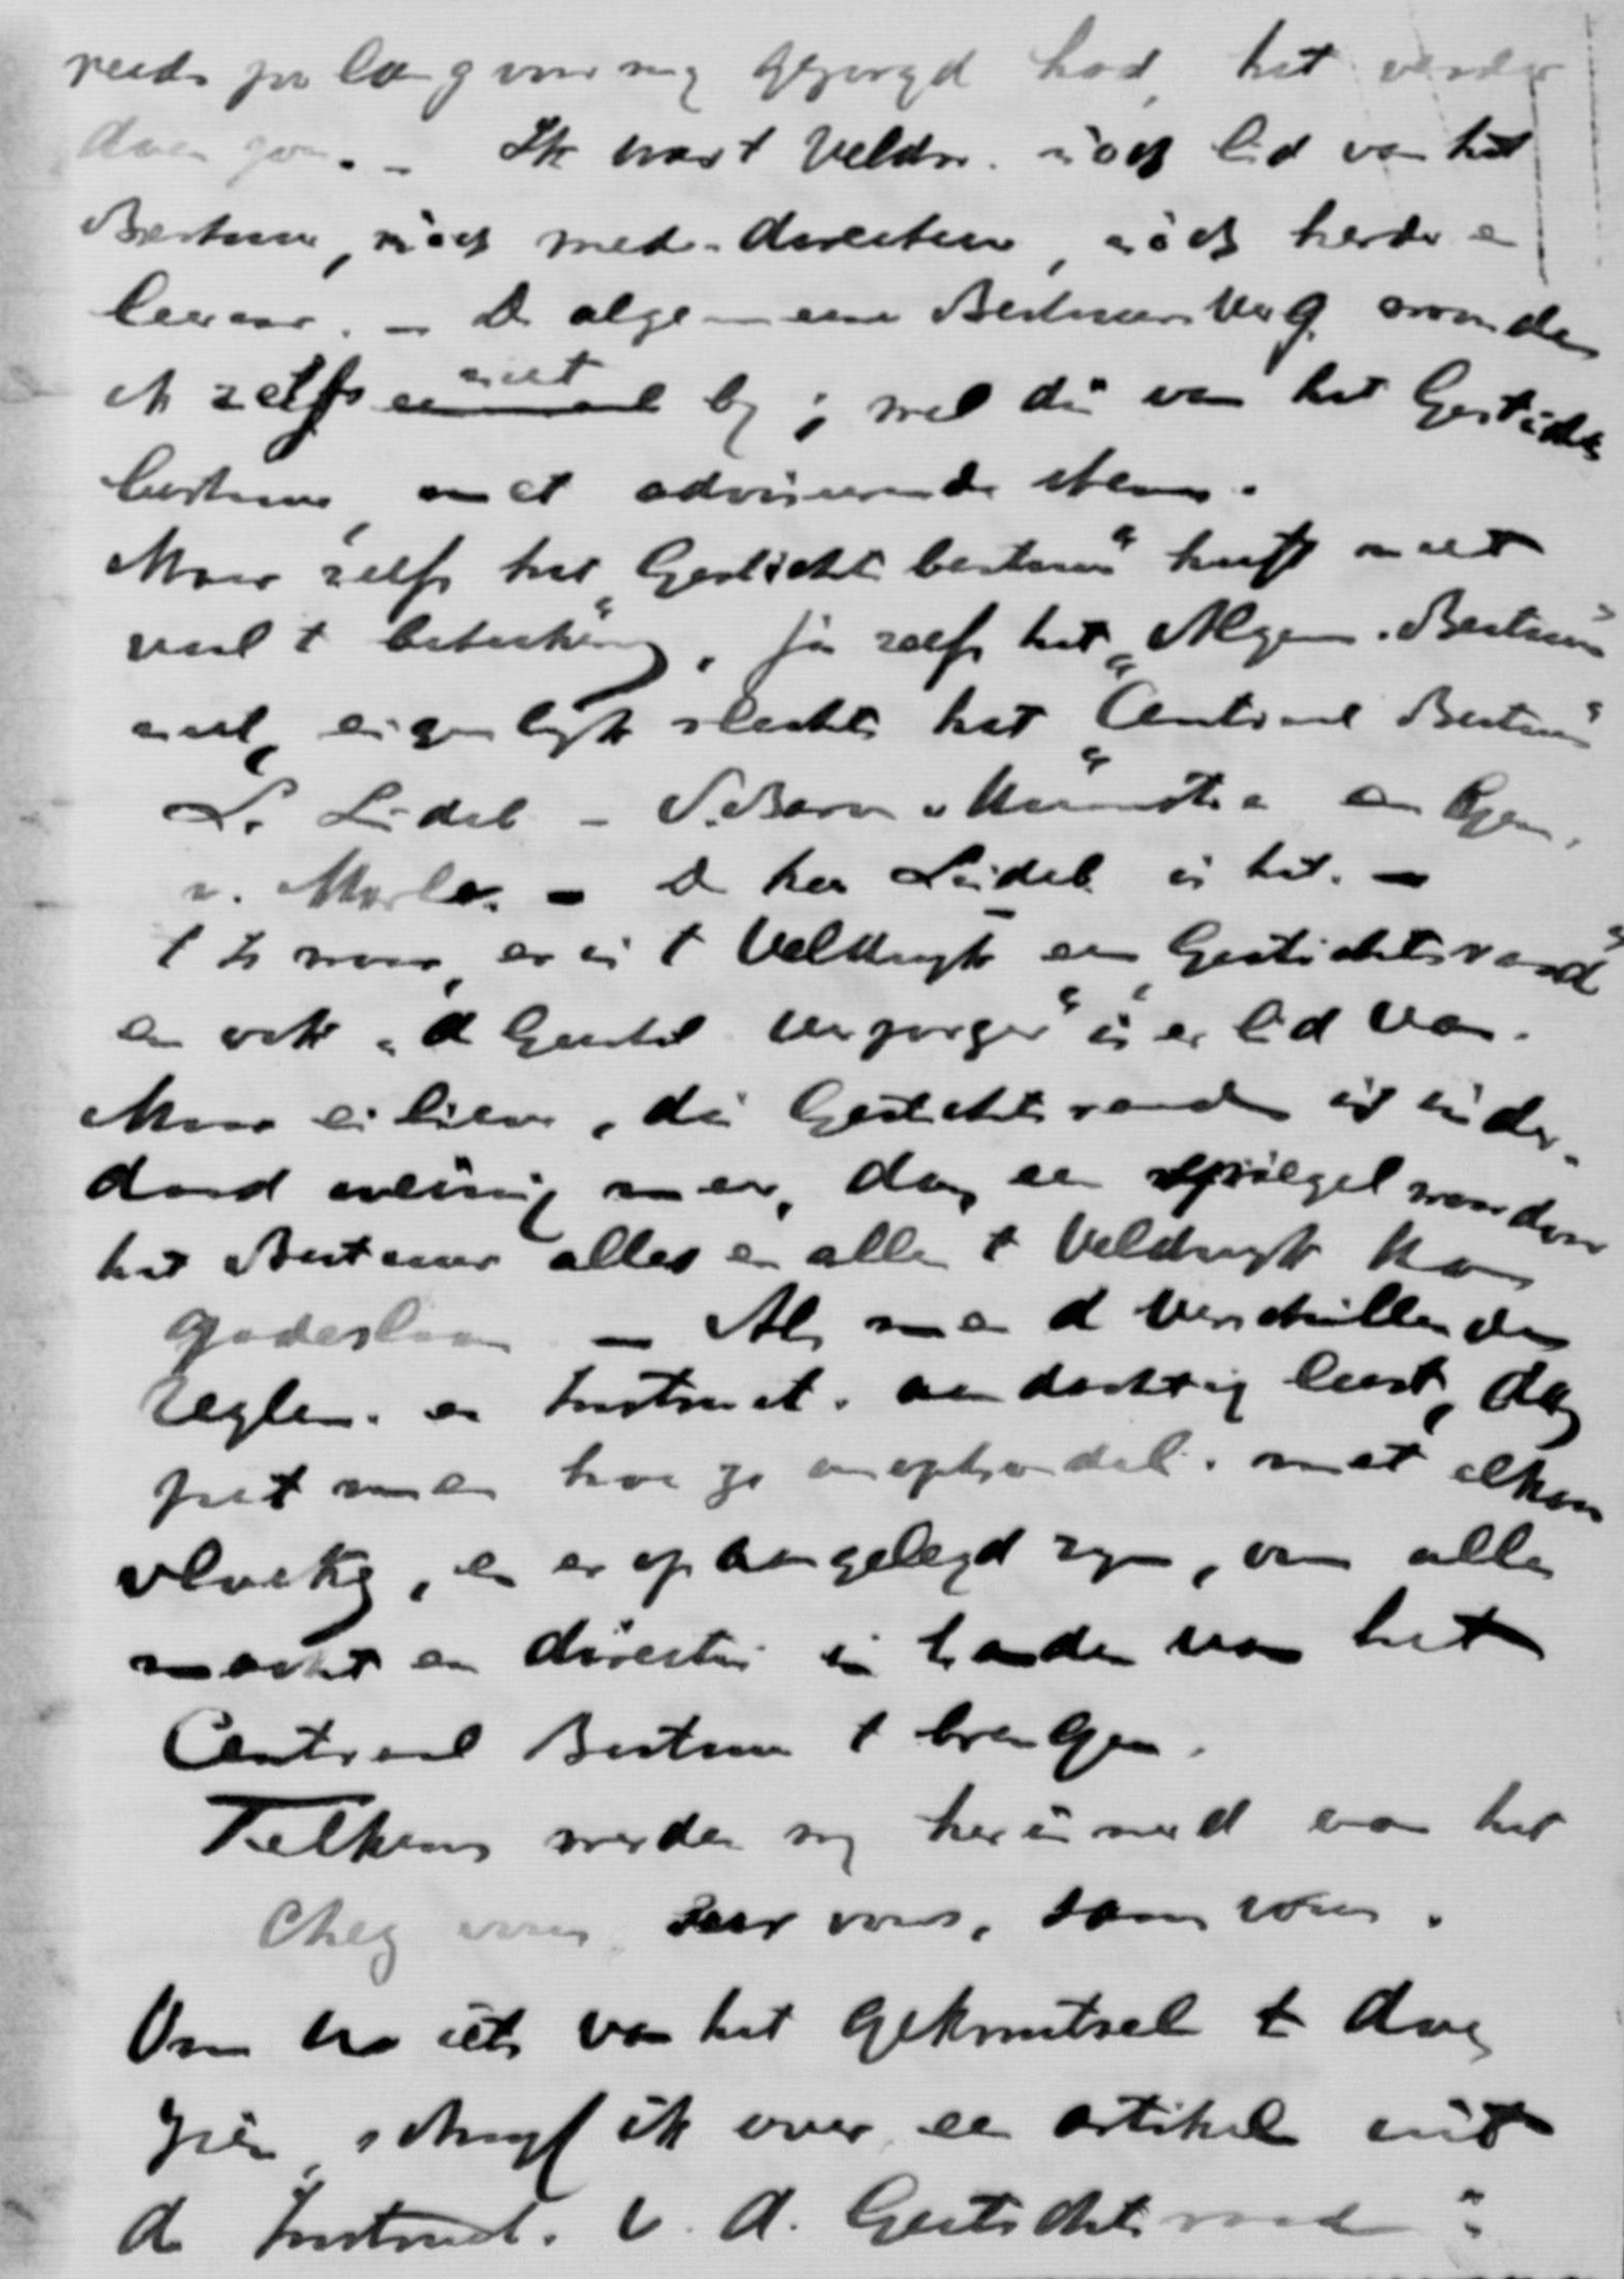 reeds zoo lang voor my gezorgd had, het verder
doen zou. - Ik was t Veldw. nòch lid van het
Bestuur, nòch mede-directeur, nòch herder en
leeraar. - De algemeene Bestuursverg. woonde
ik zelfs niet by; wel die van het Gestichts
bestuur, met adviseerende stem.
Maar zelfs het "Gestichtsbestuur" heeft niet
veel t beteeken, ja zelfs het "Algem. Bestuur"
niet, eigenlyk slechts het "Centraal Bestuur"
L. Lindeb - en
De heer Lindeb is het. -
t Is waar, er is t Veldwyk een "Gestichtsraad"
en ook "d Geestel. verzorger" is er lid van.
Maar ei lieve, die Gestichtsraad is inder-
daad weinig meer, dan een spiegel waardoor
het Bestuur alles en allen t Veldwyk kan
gadeslaan - Als men d verschillende
reglem. en Instruct. aandachtig leest, dan
ziet men hoe ze met elkaar
en er op aangelegd zyn, om alle
macht en directie in handen van het
Centraal Bestuur t brengen.
Telkens werden wy herinnerd aan het
Chez vous, sur vous, sans vous.
Om U iets van het geknutsel t doen
zien, schryf ik over een artikel uit
de Instruct. v. d. Gestichtsraad: